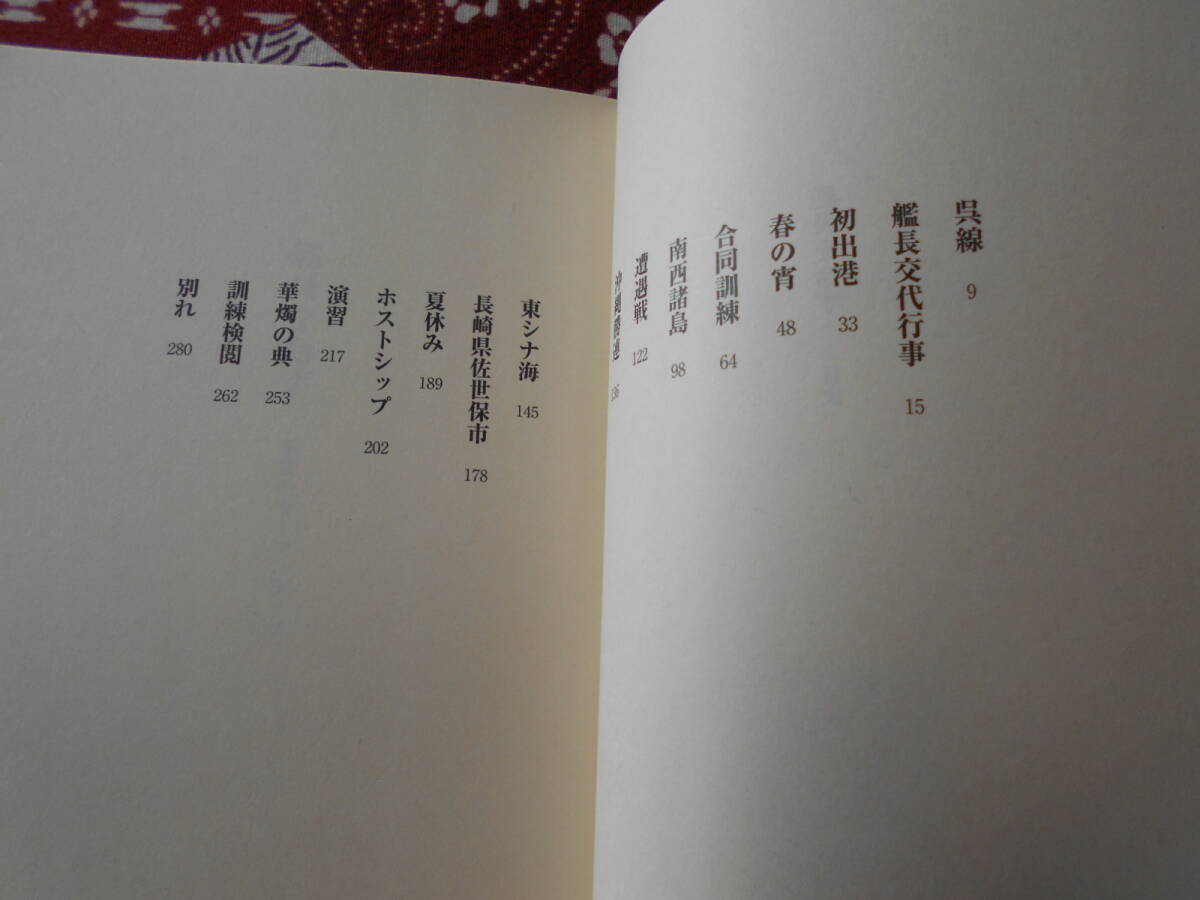 呉線 9
艦長交代行事 15
初出港 33
春の宵 48
合同訓練 64
南西諸島 98
遭遇戦 122
沖縄勝連 136
東シナ海 145
長崎県佐世保市 178
夏休み 189
ホストシップ 202
演習 217
華燭の典 253
訓練検閲 262
別れ 280